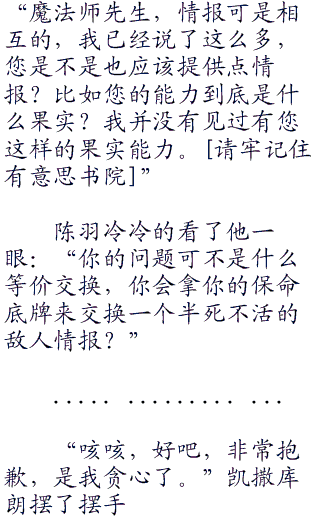 “魔法师先生，情报可是相
互的，我已经说了这么多，
您是不是也应该提供点情
报？比如您的能力到底是什
么果实？我并没有见过有您
这样的果实能力。[请牢记住
有意思书院]”
陈羽冷冷的看了他一
眼：“你的问题可不是什么
等价交换，你会拿你的保命
底牌来交换一个半死不活的
敌人情报？”
..... ......... ...
“咳咳，好吧，非常抱
歉，是我贪心了。”凯撒库
朗摆了摆手